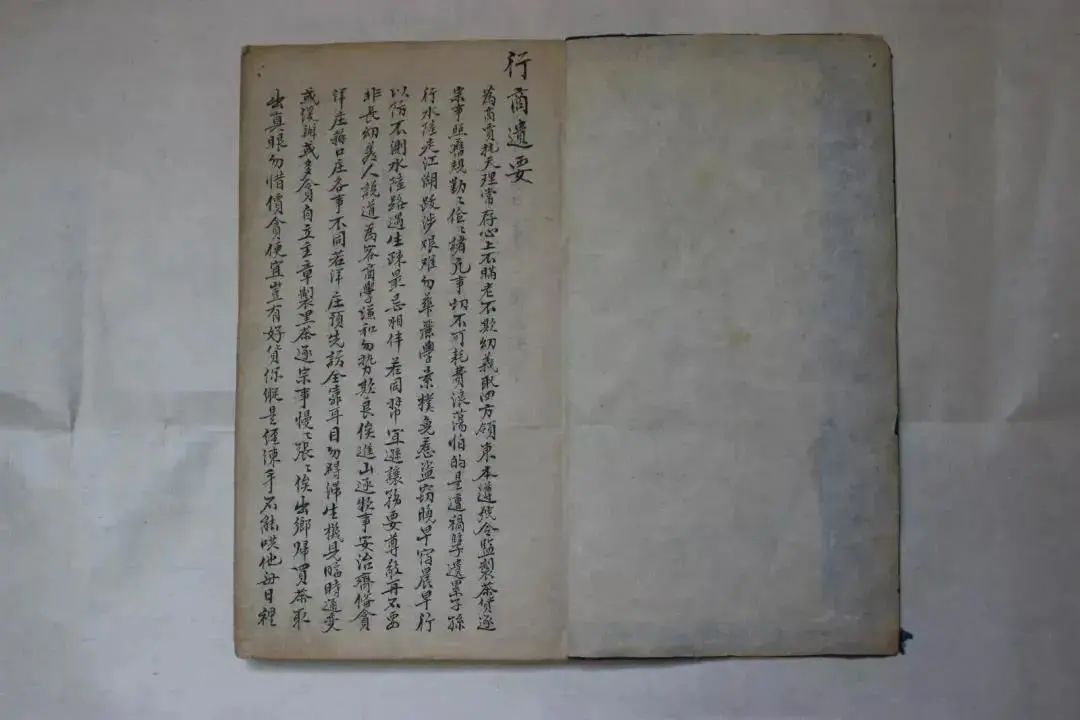 行商遺要
為商貿把天理常存心上不瞞老不欺幼義取四方領東本遵然合監製茶貨逐
宗事照舊規勤〻儉〻諸凡事切不可耗費浪蕩怕的是遭禍孽遺累子孫
行水陸走江湖跋涉艱难勿華麗學素樸免惹盜竊晚早宿晨早行
以防不測水陸路遇生疎最忌相伴若同幫宜避讓務要尊敬再不要
非長幼羞人說道為客商學謙和勿勢欺良俟進山逐歀事安治齊俻貪
洋庄蒋口庄各事不同若洋庄預先訪全靠耳目勿時滞生機見臨時通变
或後辦或多貪自立主章製里茶逐宗事慢〻張〻俟出鄉歸買茶取
出真眼勿惜價貪便宜豈有好貨你縱是經凍手不能哄他每日裡